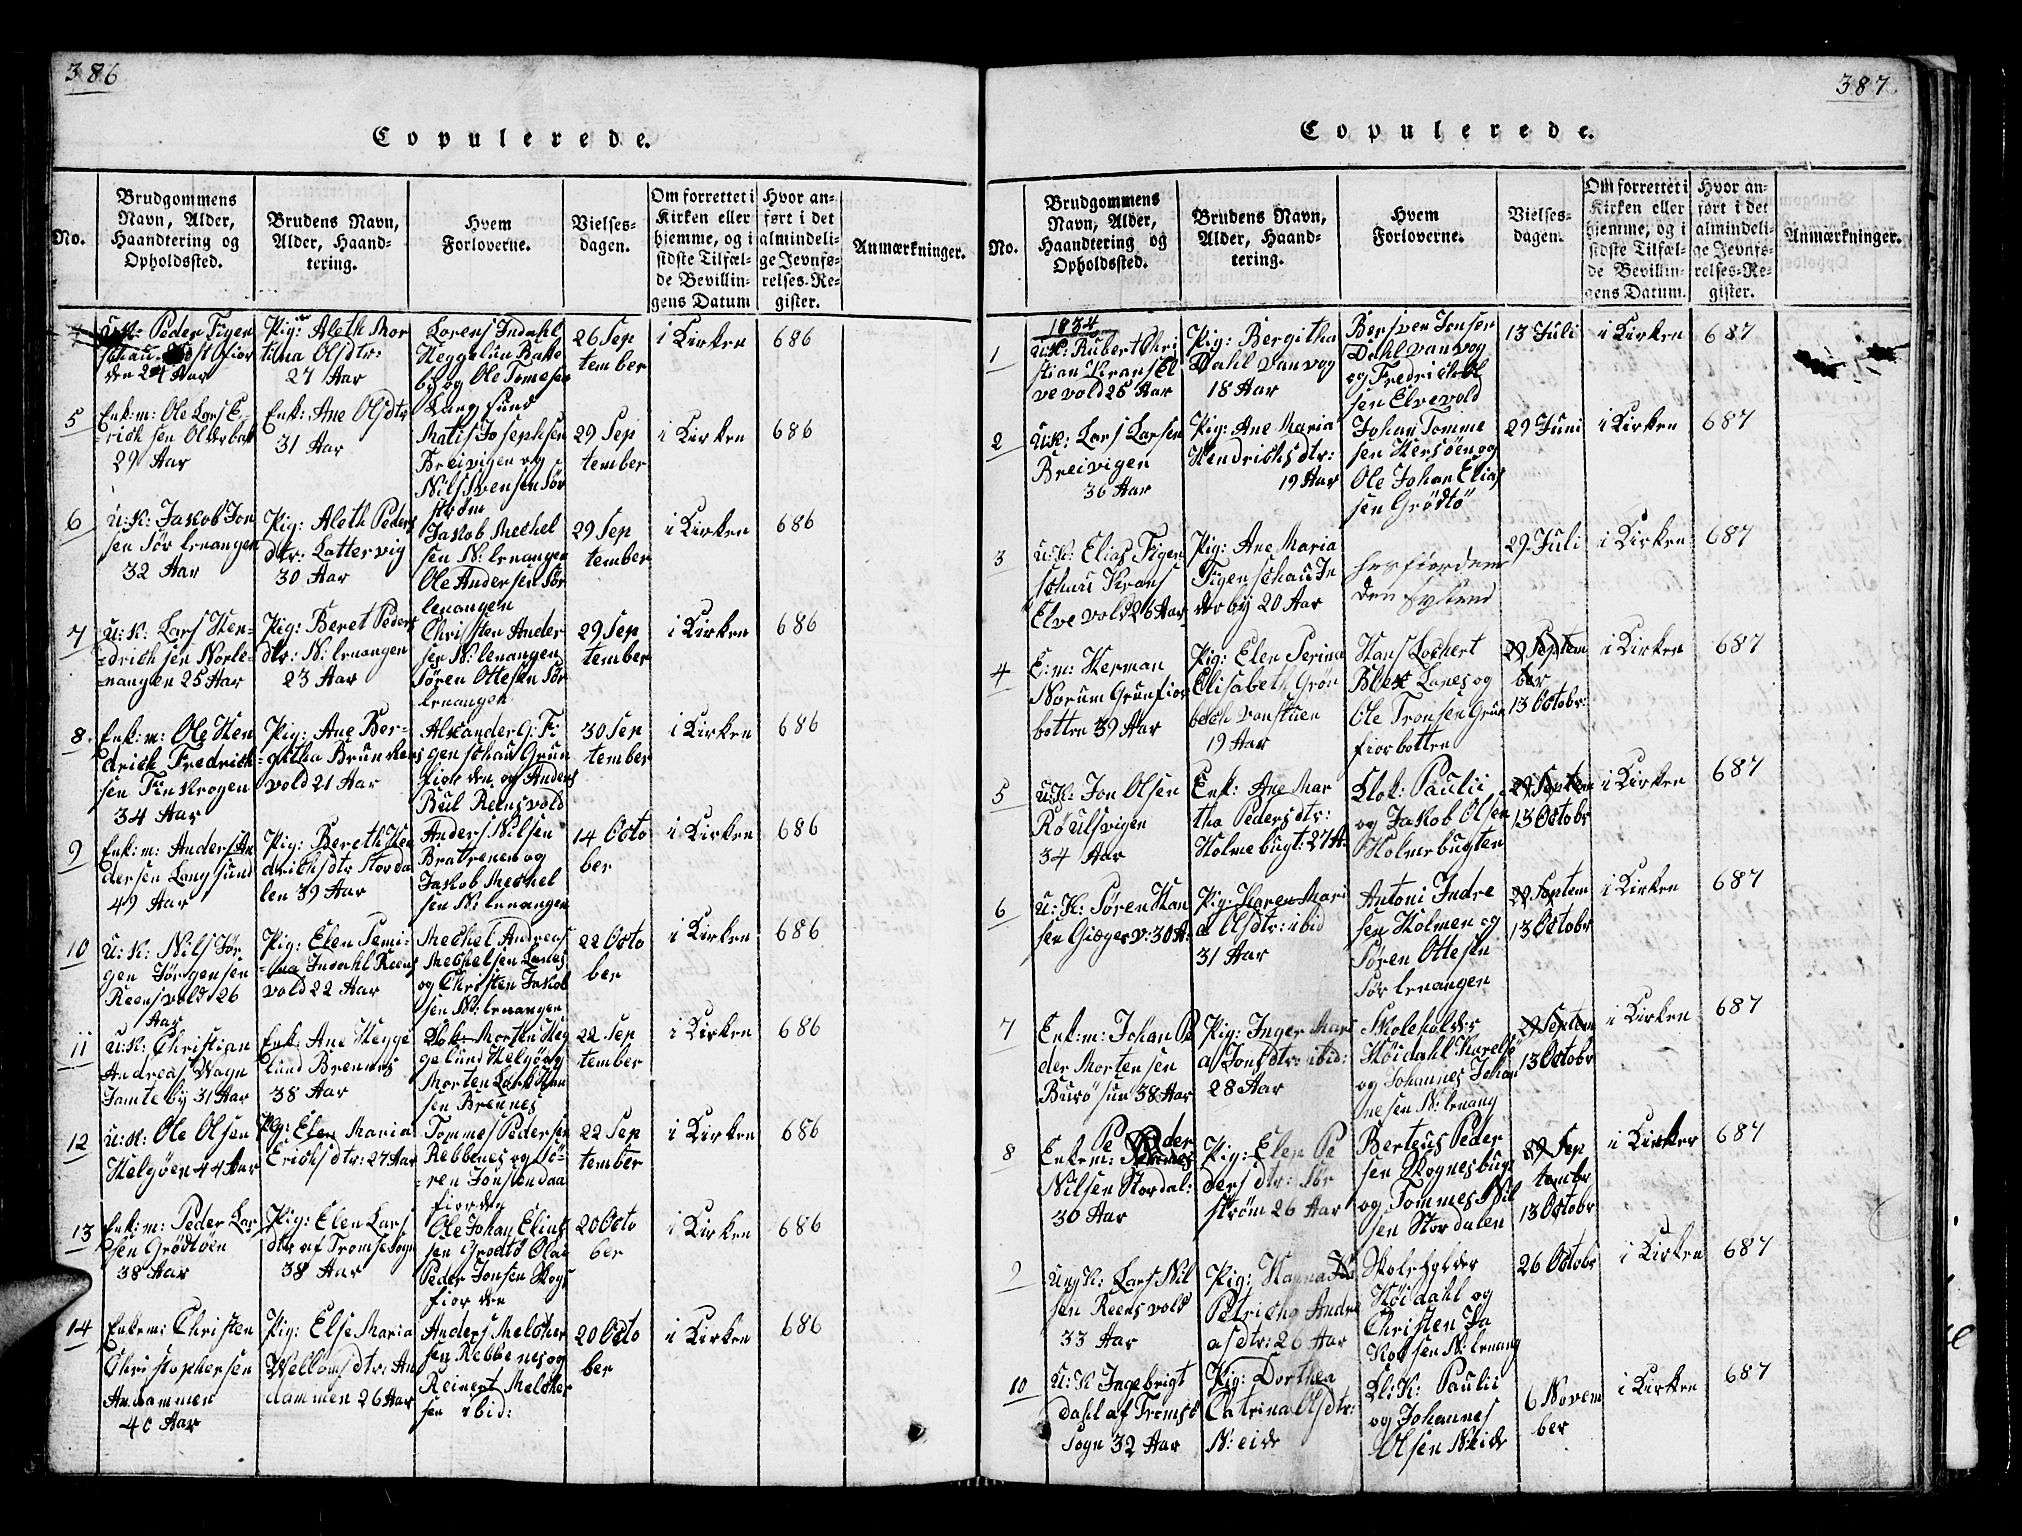 386
Copulerede.
No.
Brudgommens
Navn, Alder,
Haandtering og
Opholdssted.
Brudens Navn,
Alder, Haand-
tering.
Hvem
Forloverne.
Vielses-
dagen.
Om forrettet i
Kirken eller
hjemme, og i
sidste Tilfæl-
de Bevillin-
gens Datum
Hvor an-
ført i det
almindeli-
ge Jevnfø-
relses-Re-
gister.
Anmærkninger.
U:K: Peder Figen
schau
den 24 Aar
Pig: Aleth Mar
tina Olsdtr:
27 Aar
Lorens Indahl
Heggelun Bake
by og Ole Tomesen
Lang sund
26 Sep
tember
i Kirken
686
5
Enk:m: Ole Lars E-
-rich sen Olderbak
29 Aar
Enk: Ane Olsdtr
31 Aar
Matis Josephsen
Breivigen og
Nils Svensen Sør
strøm
29 Sep
tember
i Kirken
686
6
U:K: Jakob Jon
sen Sør lenangen
32 Aar
Pig: Aleth Peders
dtr: Lattervig
30 Aar
Jakob Mechel
sen N: lenangen
Ole Andersen Sør
lenangen
29 Sep
tember
i Kirken
686
7
U:K: Lars Hen-
-drich sen Norle-
-nangen 25 Aar
Pig: Beret Peders
dtr: N: lenangen
23 Aar
Christen Ander
sen N: lenangen
Søren Ottesen Sør
lenangen
29 Sep
tember
i Kirken
686
8.
Enk:m: Ole Hen
drich Fredrich
sen Finkrogen
34 Aar
Pig: Ane Ber-
-githa Brun Reens
vold 21 Aar
Alexander G: Fi
gen schau Grun
fiorden og Anders
Bul Reensvold
30 Sep
tember
i Kirken
686
9
Enk:m: Anders An
dersen Langsund
49 Aar
Pig: Bereth Hen
drichsdtr Storda
len 39 Aar
Anders Nilsen
Bratrenen og
Jakob Mechel
sen N: lenangen
14 Octo
ber
i Kirken
686
10
U:K: Nils Jør
gen Jørgensen
Reensvold 26
Aar
Pig: Elen Semi-
-na Indahl Reens
vold 22 Aar
Mechel Andreas
Mechelsen Lanes
og Christen Jakob
sen N: lenangen
22 Octo
ber
i Kirken
686
11
U:K: Christian
Andreas Wagn
Jamteby 31 Aar
Enk: Ane Hegge
lund Brennes
38 Aar
Klok: Morten Heg
ge lund Helgøe og
Morten Lark Han
sen Brennes
22 Sep
tember
i Kirken
686
12
U:K: Ole Olsen
Helgøen 44 Aar
Pig: Elen Maria
Erichsdtr: 27 Aar
Tommes Pedersen
Rebbenes og Sø-
-ren Jonsen Daa
fiorden
22 Sep
tember
i Kirken
686
13
Enk:m: Peder Lar
sen Grødtøen
38 Aar
Pig: Elen Lars
dtr af Tromsø Sogn
38 Aar
Ole Johan Elias
sen Grødtø Ola
Peder Jonsen Skogs
fiorden
20 Octo
ber
i Kirken
686
14
Enkem: Christen
Christophersen
Andammen
40 Aar
Pig: Else Maria
Wellomsdtr: An
dammen 26 Aar
Anders Melcher
sen Rebbenes og
Reinert Melcher
sen ibid:
20 Octo
ber
i Kirken
686
387
Copulerede.
No.
Brudgommens
Navn, Alder,
Haandtering og
Opholdssted.
Brudens Navn,
Alder, Haand-
tering.
Hvem
Forloverne.
Vielses-
dagen.
Om forrettet i
Kirken eller
hjemme, og i
sidste Tilfæl-
de Bevillin-
gens Datum.
Hvor an-
ført i det
almindeli-
ge Jevnfø-
relses-Re-
gister.
Anmærkninger.
1834
1
U:K: Rubert Chri
stian Krans El
vevold 25 Aar
Pig: Bergitha
Dahl Vanvog
18 Aar
Bersven Jonsen
Dahl Vanvog
og Fredrich
sen Elvevold
13 Juli
i Kirken
687
2
U:K: Lars Larsen
Breivigen
36 Aar
Pig: Ane Maria
Hendrichsdtr:
19 Aar
Johan Tomme
sen Hersøen og
Ole Johan Elias
sen Grødtø
29 Juni
i Kirken
687
3
U:K: Elias Figen
schau Krans
Elvevold 26 Aar
Pig: Ane Maria
Figenschau In
derby 20 Aar
29 Juli
i Kirken
687
4
E:m: Herman
Norum Grunfior
botten 39 Aar
Pig: Elen Serina
Elisabeth Grøn
bech Vanstuen
19 Aar
Hans Lochert
Blex Lanes og
Ole Tronsen Grun
fiorbotten
29 Septem
ber
13 Octobr:
i Kirken
687
5
U:K: Jon Olsen
Røulsvigen
34 Aar
Enk: Ane Mar
tha Pedersdtr:
Holmebugt: 27 A:
Klok: Paulii
og Jakob Olsen
Holmebugten
29 Septem
13 Octobr
i Kirken
687
6
U:K: Søren Han
sen Giæger v: 30 A:
Pig: Karen Mari
a Olsdtr: ibid
31 Aar
Antoni Indre
sen Holmen og
Søren Ottesen
Sør lenangen
29 Septem
13 Octobr
i Kirken
687
7
Enk:m: Johan Pe
der Mortensen
Burøsun 38 Aar
Pig: Inger Mari
a Jonsdtr: ibid:
28 Aar
Skoleholder
Høidahl Karelsø
og Johannes Johan
nesen N: lenang
29 Septem
13 Octobr
i Kirken
687
8
Enkem: Peder
Nilsen Stordal:
30 Aar
Pig: Elen Pe
ders dtr: Sør
strøm 26 Aar
Berteus Peder
sen Skognesbug
og Tommes Nil
sen Stordalen
29 Sep
tembr
13 Octobr
i Kirken
687
9
Ung K: Lars Nil
sen Reensvold
33 Aar
Pig: Hanna
Petricha Andre
asdtr: 26 Aar
Skoleholder
Høidahl og
Christen Ja
kobsen N: lenang
26 Octobr
i Kirken
687
10
U:K Ingebrigt
Dahl af Tromsø
Sogn 32 Aar
Pig: Dorthea
Catrina Olsdtr:
N: eide
Kl:K: Paulii
og Johannes
Olsen N: eide
6 Novem
ber
i Kirken
687